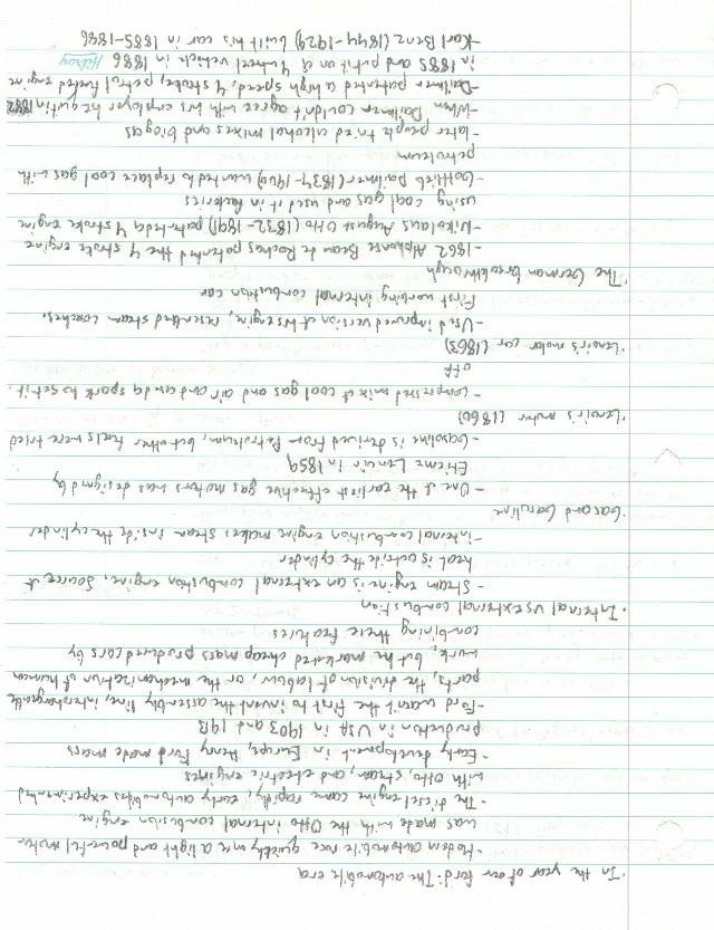 ·In the year of our ford: The automobile era
-Modern automobile rose quickly once a light and powerful motor
was made with the Otto internal combustion engine
-The diesel engine came rapidly, early automobiles experimented
with Otto, steam, and electric engines
-Early development in Europe, Henry Ford made mass
production in USA in 1903 and 1913
-Ford wasn't the first to invent the assembly line, interchangeable
parts, the division of labour, or the mechanization of human
work, but he marketed cheap mass produced cars by
combining these features
·Internal vs external combustion
-Steam engine is an external combustion engine, source of
heat is outside the cylinder
-internal combustion engine makes steam inside the cylinder
·Gas and Gasoline
-One of the earliest effective gas motors was designed by
Etienne Lenoir in 1859
-Gasoline is derived from Petroleum, but other fuels were tried
·Lenoir's motor (1860)
-Compressed mix of coal gas and air and used a spark to set it
off
·Lenoir's motor car (1863)
-Used improved version of his engine, resembled steam coaches.
First working internal combustion car
·The German breakthrough
-1862 Alphonse Beau de Rochas patented the 4 stroke engine
-Nikolaus August Otto (1832-1891) patented a 4 stroke engine
using coal gas and used it in factories
-Gottlieb Daimler (1834-1900) wanted to replace coal gas with
petroleum
-later people tried alcohol mixes and biogas
-When Daimler couldn't agree with his employer he quit in 1882
-Daimler patented a high speed, 4 stroke, petrol fueled engine
in 1885 and put it on a 4 wheel vehicle in 1886
-Karl Benz (1844-1929) built his car in 1885-1886